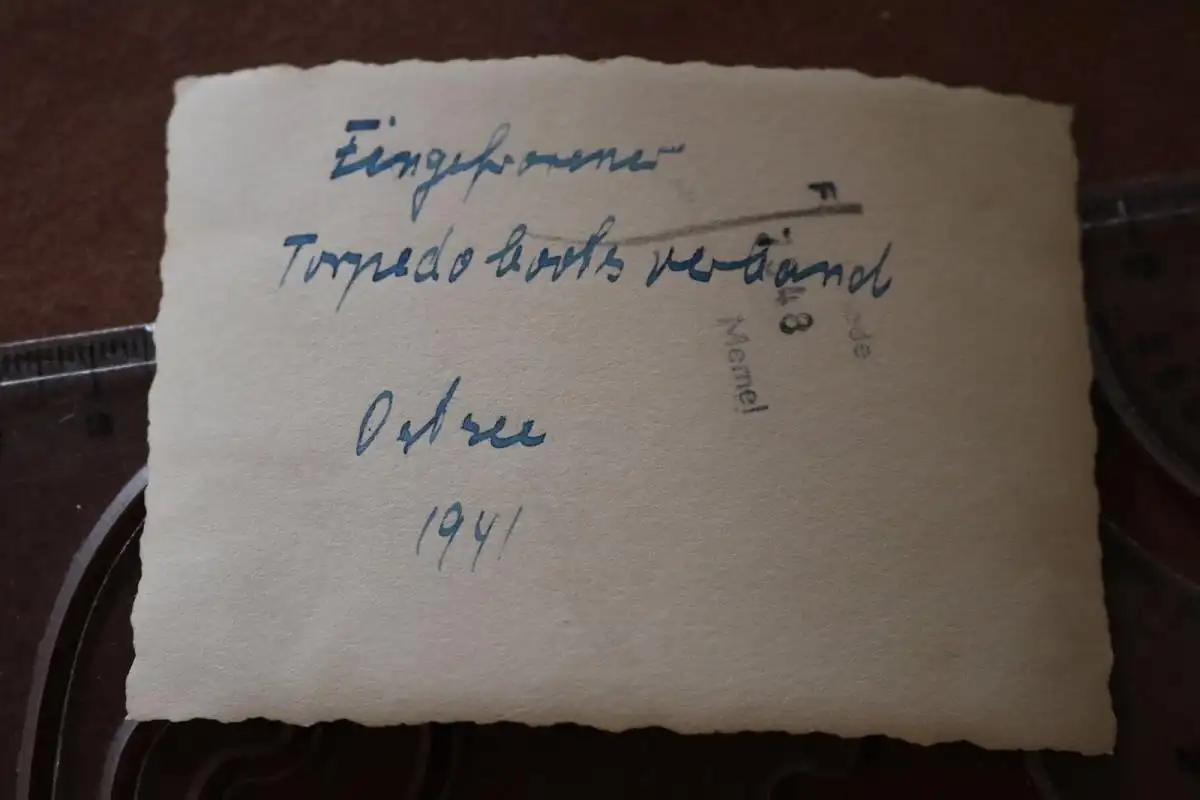 Eingefrorener
Torpedobootsverband
Ostsee
1941
F
48
Memel